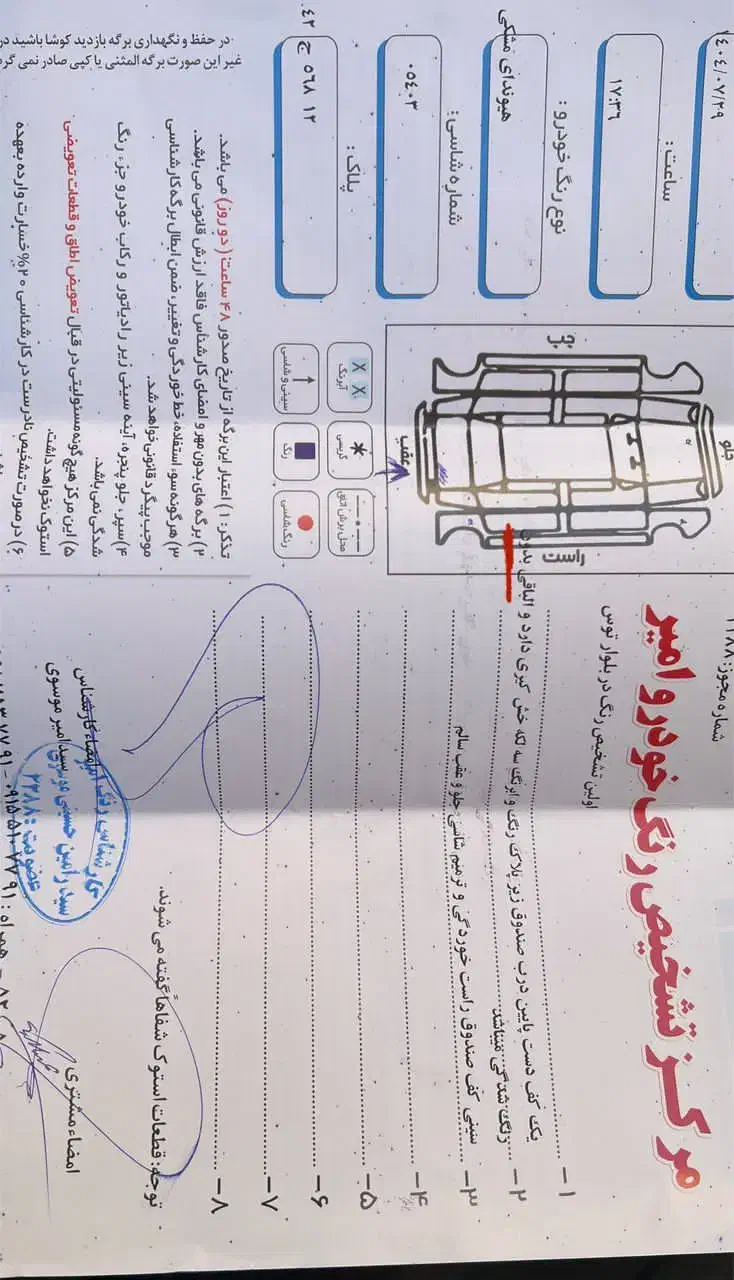 شماره مجوز: ۱۱۸۸
مرکز تشخیص رنگ خودرو امیر
اولین تشخیص رنگ در بلوار توس
۱۴۰۴/۰۷/۲۹
ساعت:
۱۷:۳۶
نوع رنگ خودرو:
هیوندای مشکی
شماره شاسی:
۰۵۴۰۳
پلاک:
۱۲ ۵۶۸ ج ۴۲
جلو
راست
چپ
عقب
آبرنگ
گریسی
محل برش اتاق
سینی و شاسی
رنگ
رنگ شاسی
۱-
یک کف دست پایین درب صندوق زیر پلاک رنگ و ابرنگ سه لکه خش گیری دارد و الباقی بدون
۲-
رنگ شدگی میباشد
۳-
سینی کف صندوق راست خوردگی و ترمیم شاسی جلو و عقب سالم
۴-
۵-
۶-
۷-
۸-
توجه: قطعات استوک شفاهاً گفته می شوند.
تذکر: ۱) اعتبار این برگه از تاریخ صدور ۴۸ ساعت (دو روز) می باشد.
۲) برگه های بدون مهر و امضای کارشناس فاقد ارزش قانونی می باشد.
۳) هرگونه سوء استفاده، خط خوردگی و تغییر، ضمن ابطال برگه کارشناسی
موجب پیگرد قانونی خواهد شد.
۴) سپر، جلو پنجره، آینه سینی زیر رادیاتور و رکاب خودرو جزء رنگ
شدگی نمی باشد.
۵) این مرکز هیچ گونه مسئولیتی در قبال تعویض اطاق و قطعات تعویضی
استوک نخواهد داشت.
۶) در صورت تشخیص نادرست در کارشناسی ۲۰% خسارت وارده بعهده
در حفظ و نگهداری برگه بازدید کوشا باشید در
غیر این صورت برگه المثنی یا کپی صادر نمی گر
امضاء کارشناس
سید امیر موسوی
کارشناس رنگ
سید رامین حسینی موسوی
عضویت: ۲۲۸۸
امضاء مشتری
همراه: ۰۹۱۵۵۱۰۷۷۹۱